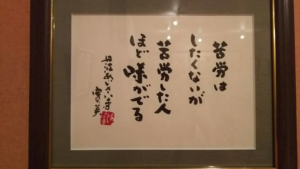 苦労は
したくないが
苦労した人
ほど味がでる